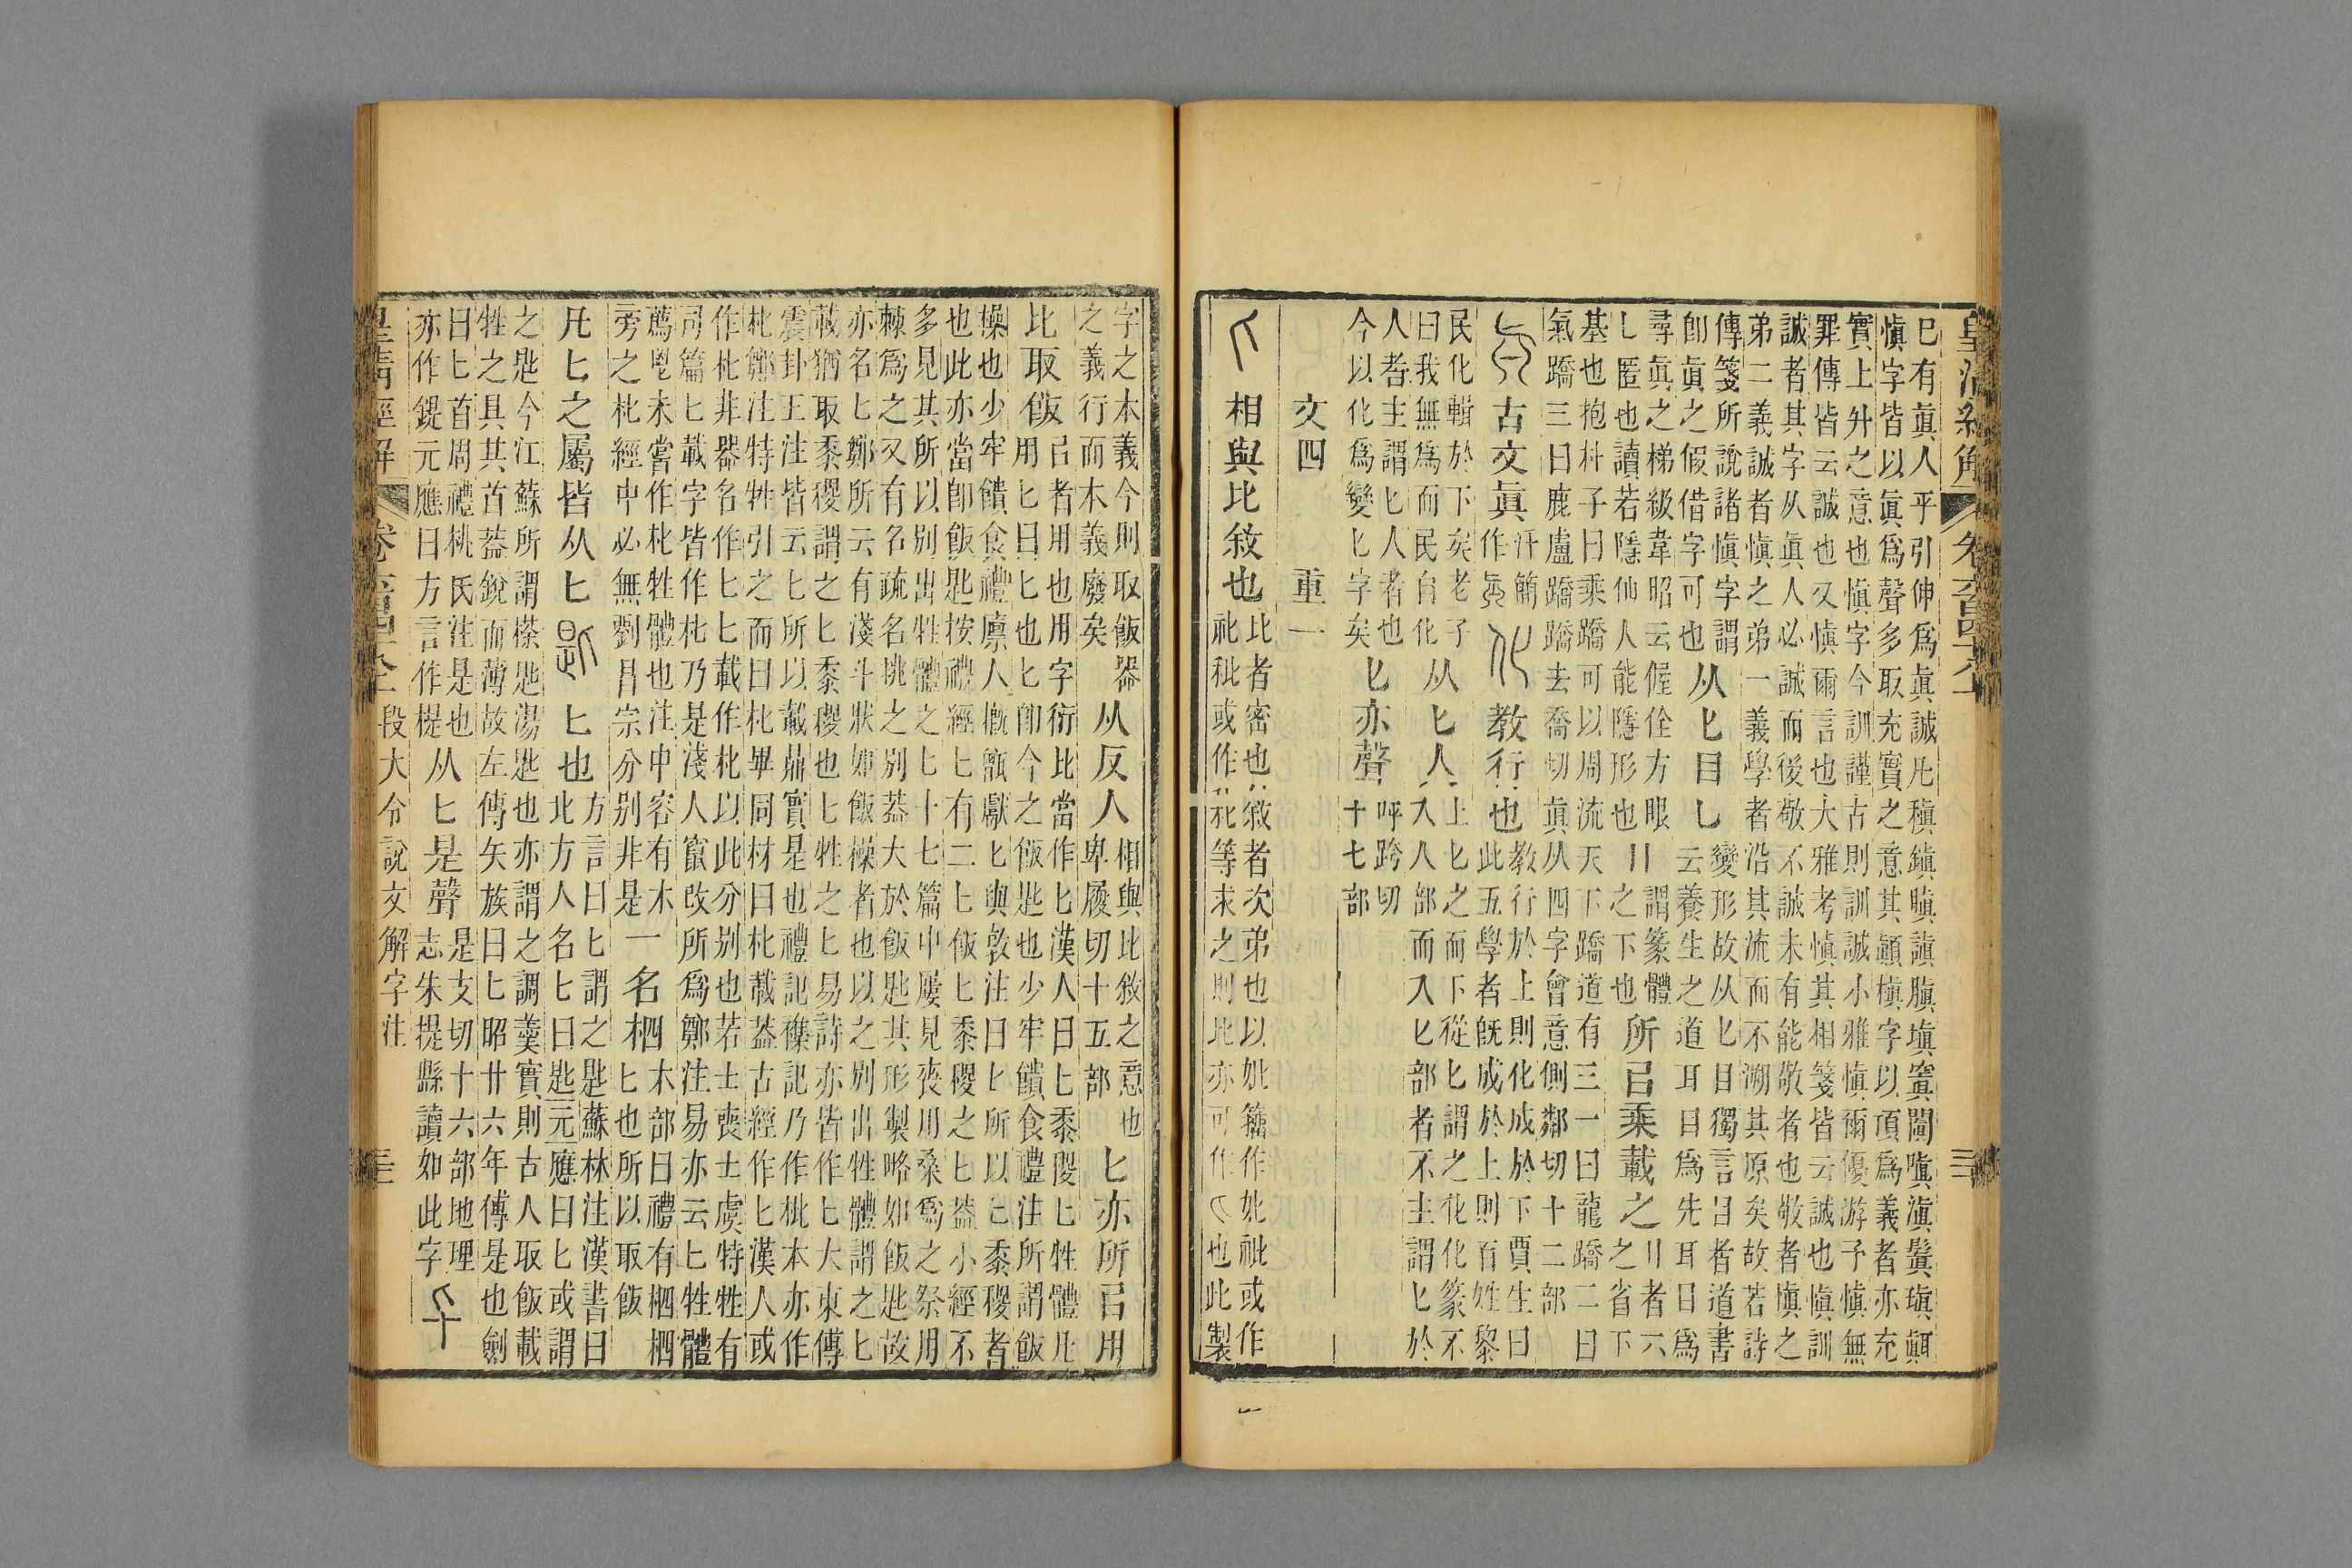 皇清經解 卷六百四十八 三三
巳有眞人乎引伸爲眞誠凡稹鎭瞋謓䐜塡寘闐嗔滇鬒瑱顚
愼字皆以眞爲聲多取充實之意其顚槇字以頂爲義者亦充
實上升之意也愼字今訓謹古則訓誠小雅愼爾優游予愼無
罪傳皆云誠也又愼爾言也大雅考愼其相箋皆云誠也愼訓
誠者其字从眞人必誠而後敬不誠未有能敬者也敬者愼之
弟二義誠者愼之弟一義學者沿其流而不溯其原矣故若詩
傳箋所說諸愼字謂
卽眞之假借字可也
从匕目乚
變形故从匕目獨言目者道書
云養生之道耳目爲先耳目爲
尋眞之梯級韋昭云偓佺方眼
乚匿也讀若隱仙人能隱形也
〢謂篆體
之下也
所㠯乘載之
〢者六
之省下
基也抱朴子曰乘蹻可以周流天下蹻道有三一曰龍蹻二曰
氣蹻三曰鹿盧蹻蹻去喬切眞从四字會意側鄰切十二部
古文眞
汗簡
作
化
教行也
教行於上則化成於下賈生曰
此五學者旣成於上則百姓黎
民化輯於下矣老子
曰我無爲而民自化
从匕人
上匕之而下從匕謂之化化篆不
入人部而入匕部者不主謂匕於
人者主謂匕人者也
今以化爲變匕字矣
匕亦聲
呼跨切
十七部
文四 重一
匕 相與比敘也
比者密也敘者次弟也以妣籒作𣬈祉或作
祂秕或作等求之則比亦可作匕也此製
字之本義今則取飯器
之義行而本義廢矣
从反人
相與比敘之意也
卑履切十五部
匕亦所㠯用
比取飯
㠯者用也用字衍比當作匕漢人曰匕黍稷匕牲體凡
用匕曰匕也匕卽今之飯匙也少牢饋食禮注所謂飯
橾也少牢饋食禮廩人摡甑獻匕與敦注曰匕所以匕黍稷者
也此亦當卽飯匙按禮經匕有二匕飯匕黍稷之匕葢小經不
多見其所以別出牲體之匕十七篇中屢見喪用桑爲之祭用
棘爲之又有名疏名挑之別葢大於飯匙其形製略如飯匙故
亦名匕鄭所云有淺斗狀如飯橾者也以之別出牲體謂之匕
載猶取黍稷謂之匕黍稷也匕牲之匕易詩亦皆作匕大東傳
震卦王注皆云匕所以載鼎實是也禮記襍記乃作枇本亦作
朼鄭注特牲引之而曰朼畢同材曰朼載葢古經作匕漢人或
作朼非器名作匕匕載作朼以此分别也若士喪士虞特牲有
司篇匕載字皆作朼乃是淺人竄改所爲鄭注易亦云匕牲體
薦鬯未嘗作朼牲體也注中容有木
旁之朼經中必無劉昌宗分别非是
一名柶
木部曰禮有柶柶
匕也所以取飯
凡匕之屬皆从匕
匙 匕也
方言曰匕謂之匙蘇林注漢書曰
北方人名匕曰匙元應曰匕或謂
之匙今江蘇所謂槎匙湯匙也亦謂之調羹實則古人取飯載
牲之具其首葢銳而薄故左傳矢族曰匕昭廿六年傳是也劍
曰匕首周禮桃氏注是也
亦作鍉元應曰方言作椻
从匕是聲
是支切十六部地理
志朱提縣讀如此字
皇清經解 卷六百四十八 段大令說文解字注